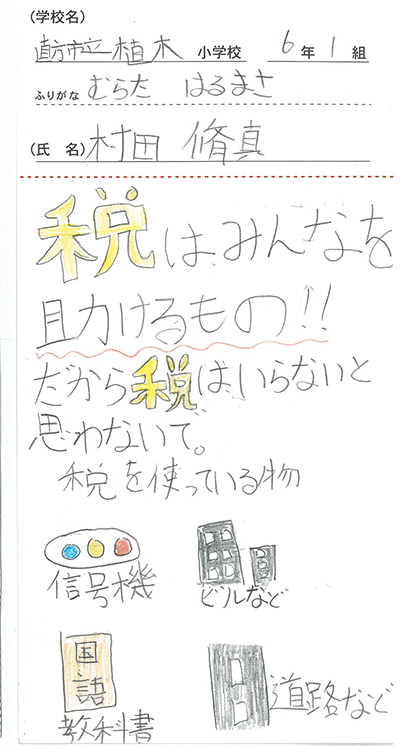 (学校名)
直方市立植木 小学校 6年1組
ふりがな むらた はるまさ
(氏 名) 村田 脩真
税は、みんなを
助けるもの!!
だから税はいらないと
思わないで。
税を使っている物
信号機
ビルなど
国語
教科書
道路など